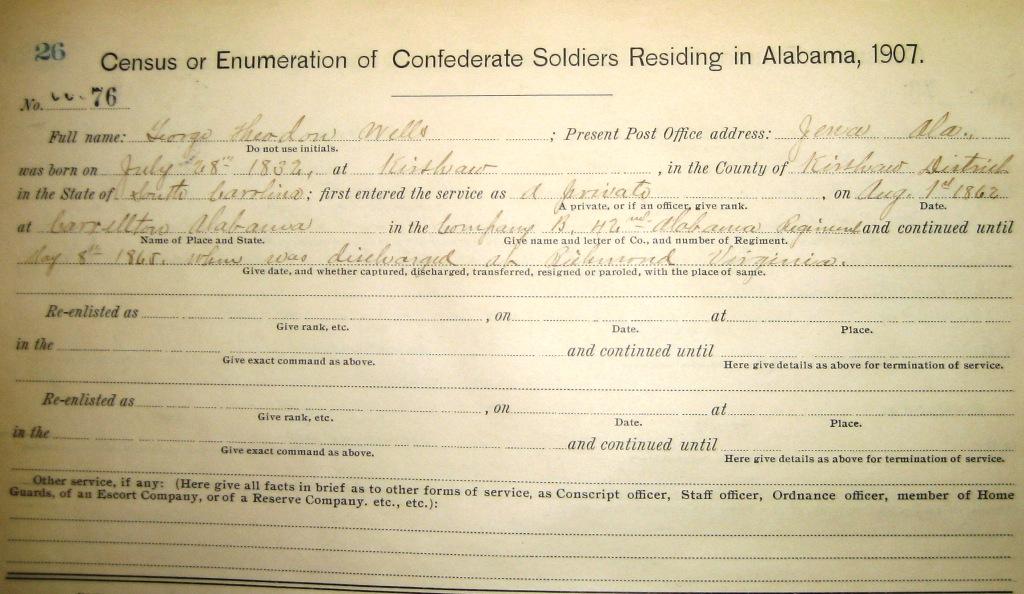 26
Census or Enumeration of Confederate Soldiers Residing in Alabama, 1907.
No. 76
Full name: George Theodore Wells ; Present Post Office address: Ala.
Do not use initials.
was born on July 28th 1832, at Kirshaw , in the County of Kirshaw District
in the State of South Carolina; first entered the service as A private , on Aug. 1st 1862
A private, or if an officer, give rank. Date.
at Carrollton Alabama in the Company B. 42nd Alabama Regiment and continued until
Name of Place and State. Give name and letter of Co., and number of Regiment.
May 8th 1865. when was discharged at Richmond Virginia.
Give date, and whether captured, discharged, transferred, resigned or paroled, with the place of same.
Re-enlisted as , on at
Give rank, etc. Date. Place.
in the and continued until
Give exact command as above. Here give details as above for termination of service.
Re-enlisted as , on at
Give rank, etc. Date. Place.
in the and continued until
Give exact command as above. Here give details as above for termination of service.
Other service, if any: (Here give all facts in brief as to other forms of service, as Conscript officer, Staff officer, Ordnance officer, member of Home
Guards, of an Escort Company, or of a Reserve Company. etc., etc.):